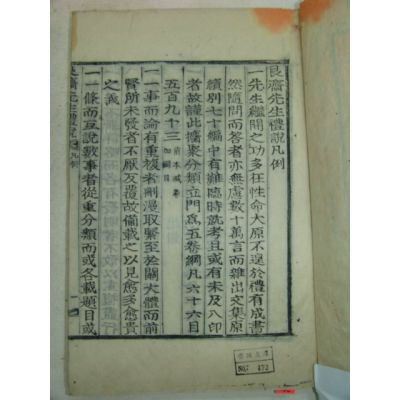 艮齋先生禮說凡例
一先生繼開之功多在性命大原不遑於禮有成書
然隨問而答者亦無慮數十萬言而雜出文集原
續別七十編中有難臨時眈考且或有未及入印
者故謹此攟聚分類立門爲五卷綱凡六十六目
五百九十三
一一事而論有重複者刪漫取緊至於關大體而前
賢所未發者不厭反覆故備載之以見愈多愈貴
之義
一一條而互說數事者從重分類而或各載題目或
艮齋先生禮說
凡例
一
NO. 472